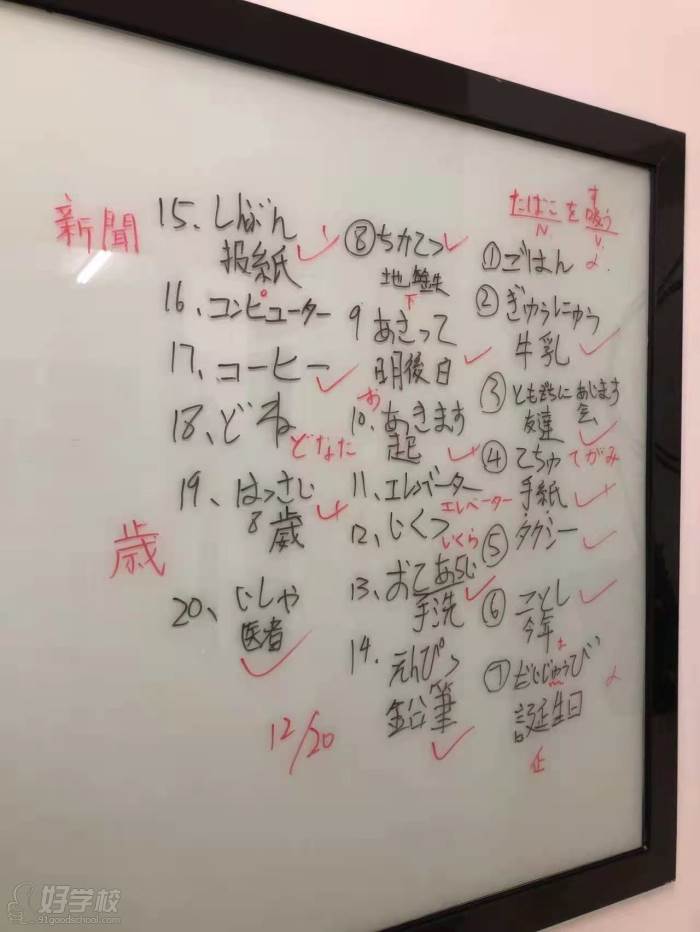 たばこを吸う
す
N
V
①ごはん
②ぎゅうにゅう
牛乳
③ともだちにあじます
友達 会
④てちゅ てがみ
手紙
⑤タクシー
⑥ことし
今年
⑦だいじゅうび
誕生日
⑧ちかてつ
地鉄
下
9 あさって
明後日
10、あっきます
お
起
11、エレバーター
エレベーター
12、いくつ
いくら
13、おてあらい
手洗
14. えんぴつ
鉛筆
15、しんぶん
报紙
新聞
16、コンピューター
17、コーヒー
18、どね
どなた
19、はっさい
8歳
歳
20、いしゃ
医者
12/20
好学校
91goodschool.com